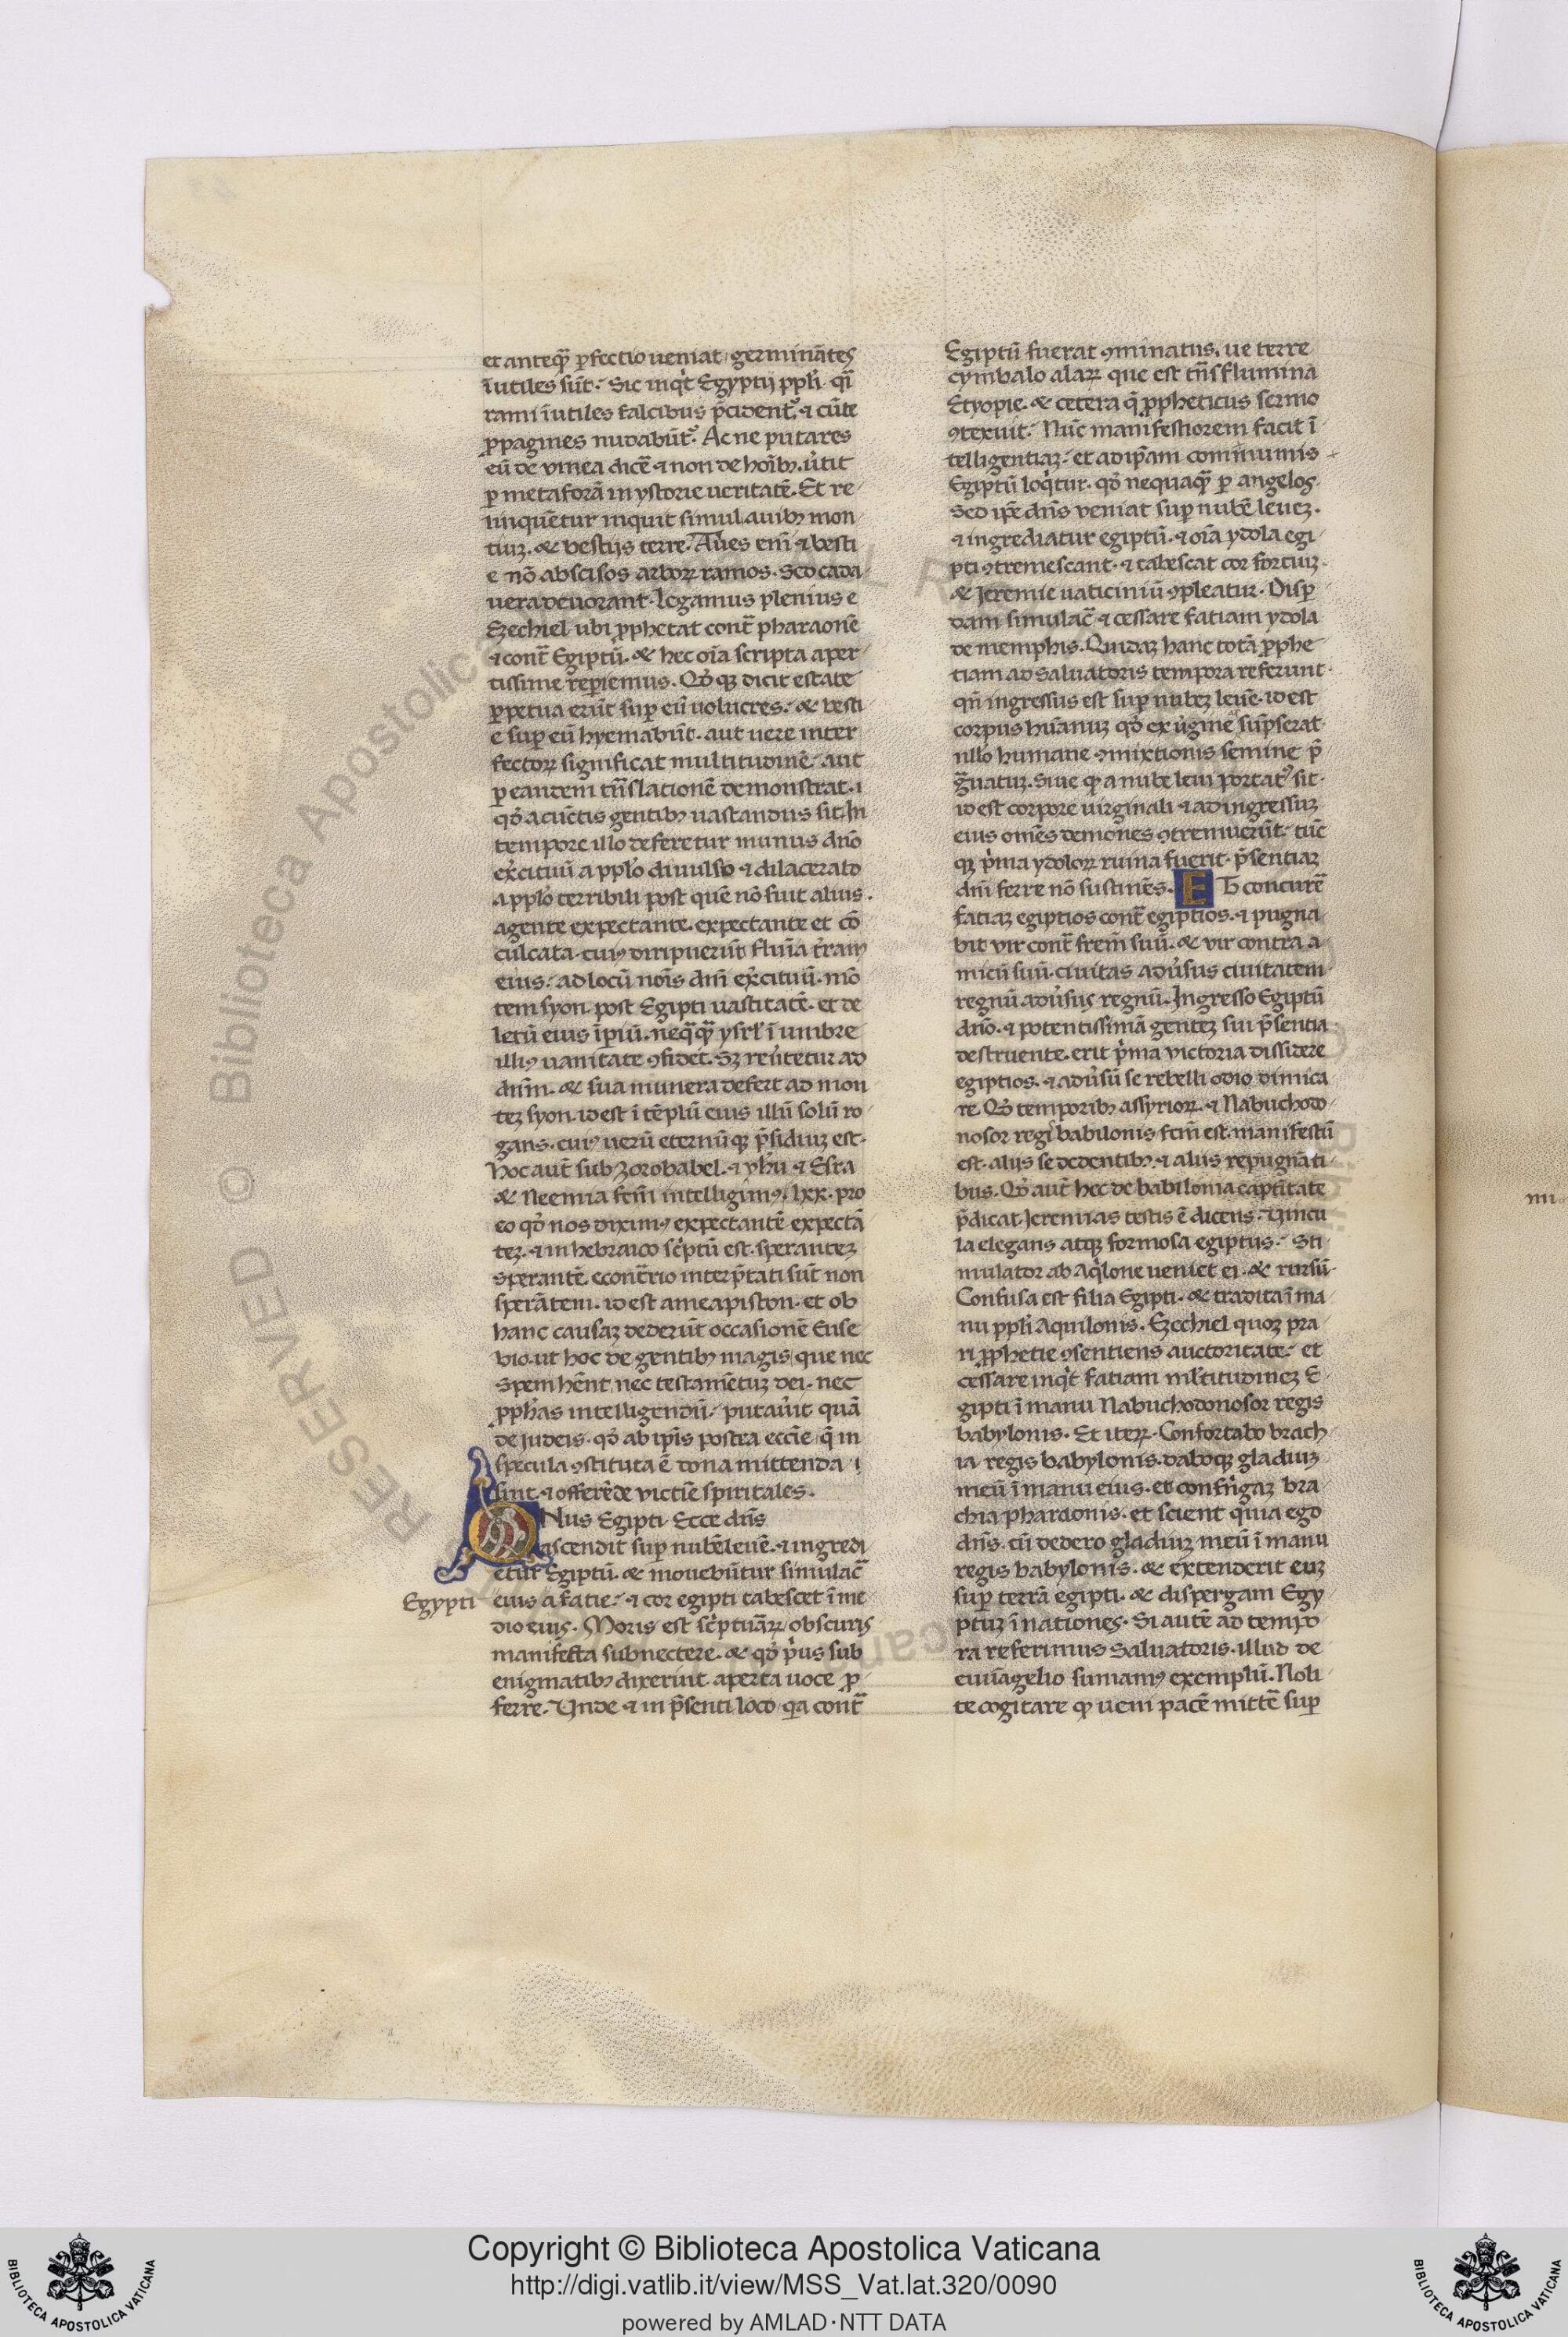 et anteq̃ ꝑfectio ueniat germinātes
īutiles sūt. Sic inqͥt Egyptij ppl̓i qͣi
rami īutiles falcibus p̄cident᷑ ⁊ cūte
ꝓpagines nudabūt᷑. Ac ne putares
eū de vinea dicē ⁊ non de hoı̄bꝫ. ut̓it
ꝑ metaforā in ystorie ueritatē. Et re
linquētur inquit simul auibꝫ mon
tiuꝫ. & bestijs terre. Aues eni᷑ ⁊ besti
e nō abscisos arboꝝ ramos. Sed cada
uera deuorant. Legamus plenius e
Ezechiel ubi ꝓphetat contᷓ pharaonē
⁊ contᷓ Egiptū. & hec oı̄a scripta aper
tissime reperiemus. Qd̓ qꝫ dicit estate
ꝑpetua erūt suꝑ eū uolucres. & besti
e suꝑ eū hyemabūt. aut uere inter
fectoꝝ significat multitudinē. aut
ꝑ eandem trñslationē demonstrat. i
qd̓ a cūctis gentibꝫ uastandus sit. In
tempore illo deferetur munus dño
exc̓ituū a pplo̓ diuulso ⁊ dilacerato
a pplo̓ terribili post quē nō fuit alius.
agente expectante. expectante et cō
culcata. cuiꝰ diripuerūt fluı̄a tr̓am
eius. ad locū noı̄s dñi exc̓ituū. mō
tem syon. post Egipti uastitatē. et de
letū eius īpiū. neqͣqͣ᷑ ysrl̓ ī umbre
illiꝰ uanitate ꝯfidet. Sꝫ reūtetur ad
dñm. & sua munera defert ad mon
teꝫ syon. id est ī tēplū eius illū solū ro
gans. cuiꝰ uerū eternūqꝫ p̄sidiuꝫ est.
Hoc aut̄ sub Zorobabel. ⁊ yhū ⁊ Esra
& Neemia fcm̄ intelligimꝰ. lxx. pro
eo qd̓ nos diximꝰ expectantē expectā
teꝫ. ⁊ in hebraico scͥptū est. sperantez
sperantē. econtrͣio interp̄tati sūt non
sperātem. id est ameapiston. et ob
hanc causaꝫ dederūt occasionē Euse
bio. ut hoc de gentibꝫ magis que nec
spem hēnt nec testamētuꝫ dei. nec
ꝓph̓as intelligendū. putau̓it quā
de judeis. qd̓ ab ipı̄s postea eccı̄e q̄ in
specula ꝯstituta ē dona mittenda i
sint. ⁊ offerēde victı̄e spiritales.
ONus Egipti. Ecce dñs
ascendit suꝑ nubē leuē. ⁊ ingredi
etur Egiptū. & mouebūtur simulacᷓ
eius a fatie. ⁊ cor egipti tabescet ī me
dio eius. Moris est scͥptuāꝝ obscuris
manifesta subnectere. & qd̓ pͥus sub
enigmatibꝫ dixerint. aperta uoce ꝓ
ferre. Unde ⁊ in p̄senti loco qͥa contᷓ
Egypti
Egiptū fuerat ꝯminatus. ue terre
cymbalo alaꝝ que est trñs flumina
Etyopie. & cetera q̄ ꝓpheticus sermo
ꝯtexuit. Nūc manifestiorem facit ī
telligentiaꝫ. et ad ipām comminus
Egiptū loqͥtur. qd̓ nequaqͣ᷑ ꝑ angelos.
Sed ipē dñs veniat suꝑ nubē leuez.
⁊ ingrediatur egiptū. ⁊ oı̄a ydola egi
pti ꝯtremescant. ⁊ tabescat cor fortiuꝫ.
& Jeremie uaticiniū ꝯpleatur. Disꝑ
dam simulacᷓ ⁊ cessare fatiam ydola
de memphis. Quidaꝫ hanc totā ꝓphe
tiam ad saluatoris tempora referunt.
qn̄ ingressus est suꝑ nubez leuē. id est
corpus hūanuꝫ qd̓ ex uͥgine sūpserat.
nllo̓ humane ꝯmixtionis semine p̄
gͣuatuꝫ. Siue qꝫ a nube leui portat᷑ sit.
id est corpore uirginali ⁊ ad ingressuꝫ
eius omēs demones ꝯtremuerūt. tūc
qꝫ pͥma ydoloꝝ ruina fuerit. p̄sentiaꝫ
dñi ferre nō sustinēs. ET concurē
fatiaꝫ egiptios contᷓ egiptios. ⁊ pugna
bit vir contᷓ frem̄ suū. & vir contra a
micū suū. ciuitas adūsus ciuitatem.
regnū adūsus regnū. Ingresso Egiptū
dño. ⁊ potentissimā genteꝫ sui p̄sentia
destruente. erit pͥma victoria dissidere
egiptios. ⁊ adūsū se rebelli odio dimica
re. Qd̓ temporibꝫ assyrioꝝ. ⁊ Nabuchodo
nosor regi babilonis fcm̄ est. manifestū
est. alijs se dedentibꝫ. ⁊ aliis repugnāti
bus. Qd̓ aut̄ hec de babilonia captiͥtate
p̄dicat. Jeremias testis ē dicens. Uincu
la elegans atqꝫ formosa egiptus. Sti
mulator ab Aqͥlone ueniet ei. & rursū.
Confusa est filia Egipti. & tradita ī ma
nu ppl̓i Aquilonis. Ezechiel quoꝫ pra
ri ꝓphetie ꝯsentiens auctoritate. et
cessare inqͥt fatiam ml̓titudineꝫ E
gipti ī manu Nabuchodonosor regis
babylonis. Et iteꝝ. Confortabo brach
ia regis babylonis. daboqꝫ gladiuꝫ
meū ī manu eius. et confrͥngaꝫ bra
chia pharaonis. et scient quia ego
dñs. cū dedero gladiuꝫ meū ī manu
regis babylonis. & extenderit euꝫ
suꝑ terrā egipti. & dispergam Egy
ptuꝫ ī nationes. Si autē ad tempo
ra referimus Saluatoris. illud de
euāgelio sumamꝰ exemplū. Noli
te cogitare qꝫ ueni pacē mittē suꝑ
RESERVED © Biblioteca Apostolica
Copyright © Biblioteca Apostolica Vaticana
http://digi.vatlib.it/view/MSS_Vat.lat.320/0090
powered by AMLAD·NTT DATA
BIBLIOTECA APOSTOLICA VATICANA
BIBLIOTECA APOSTOLICA VATICANA